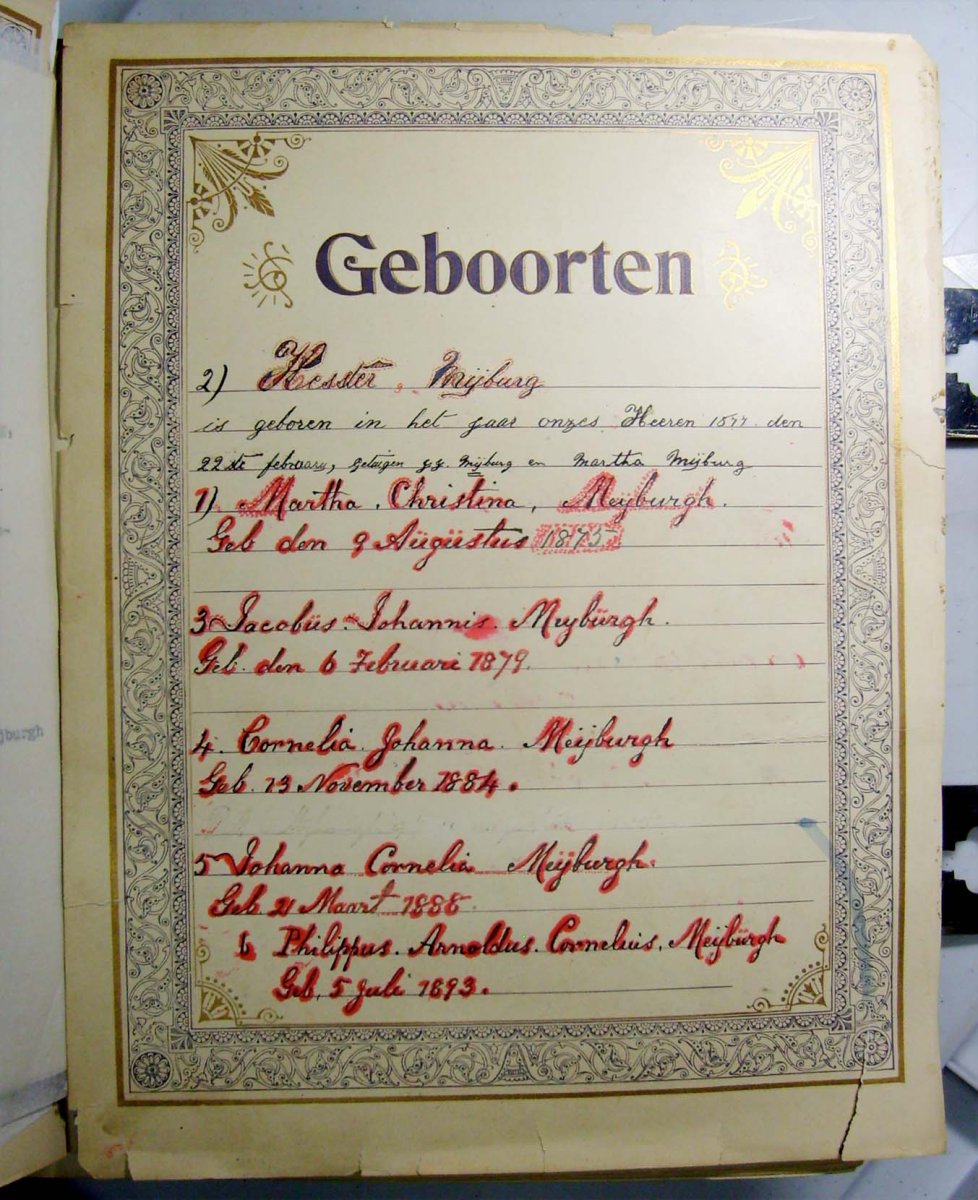 Geboorten
2) Hesster, Mijburg
is geboren in het jaar onzes Heeren 1877 den
22ste februaru, getuigen j.j. Mijburg en Martha Mijburg
1) Martha. Christina, Meijburgh.
Geb den 9 Aügüstus 1875
3 Jacobüs. Johannis. Meyburgh.
Geb. den 6 Februari 1879.
4. Cornelia. Johanna. Meijburgh
Geb. 13 November 1884.
5 Johanna Cornelia Meijburgh.
Geb. 21 Maart 1888.
6 Philippus. Arnoldus. Cornelius. Meijburgh
Geb. 5 Juli 1893.
jburgh